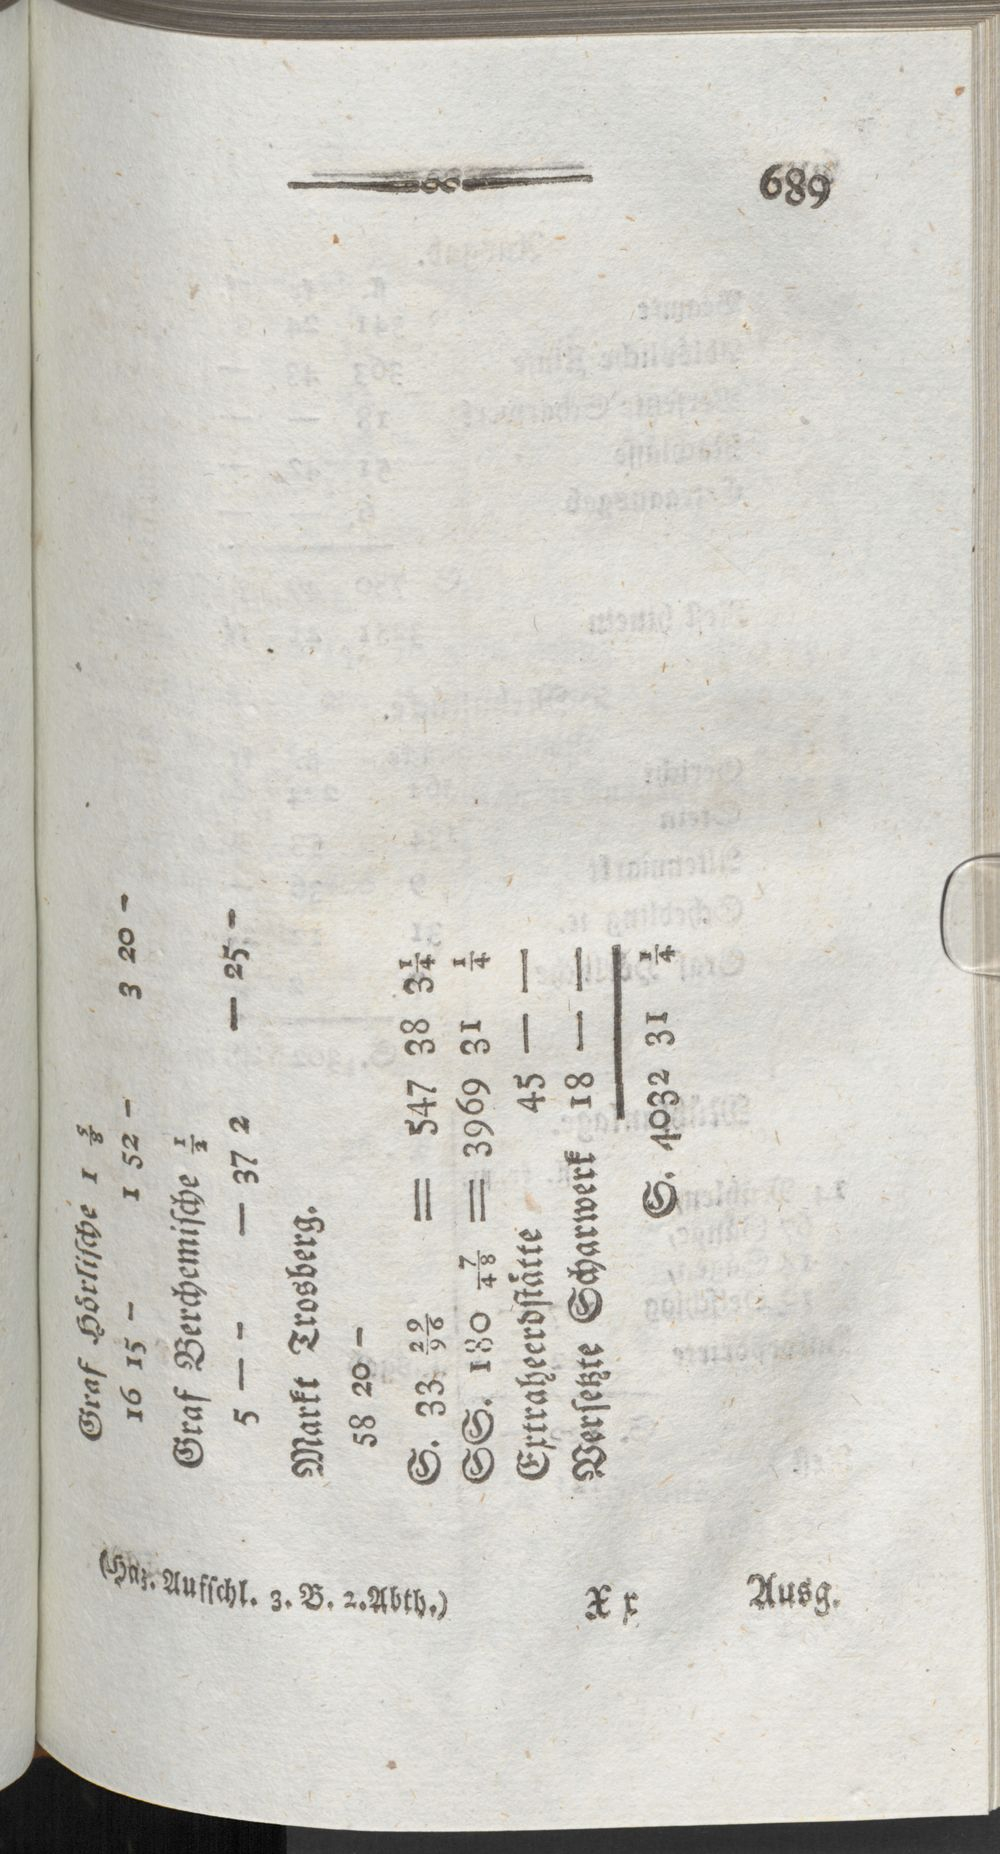 689
Graf Hörlische 1 5/8
16 15 — 1 52 — 3 20 —
Graf Berchemische 1/2
5 — — — 37 2 — 25 —
Markt Trosberg.
58 20 —
S. 33 29/96 = 547 38 3 1/4
SS. 180 7/48 = 3969 31 1/4
Extraheerdstätte 45 — —
Versetzte Scharwerk 18 — —
S. 4032 31 1/4
(Haz. Aufschl. 3. B. 2. Abth.) X x Ausg.